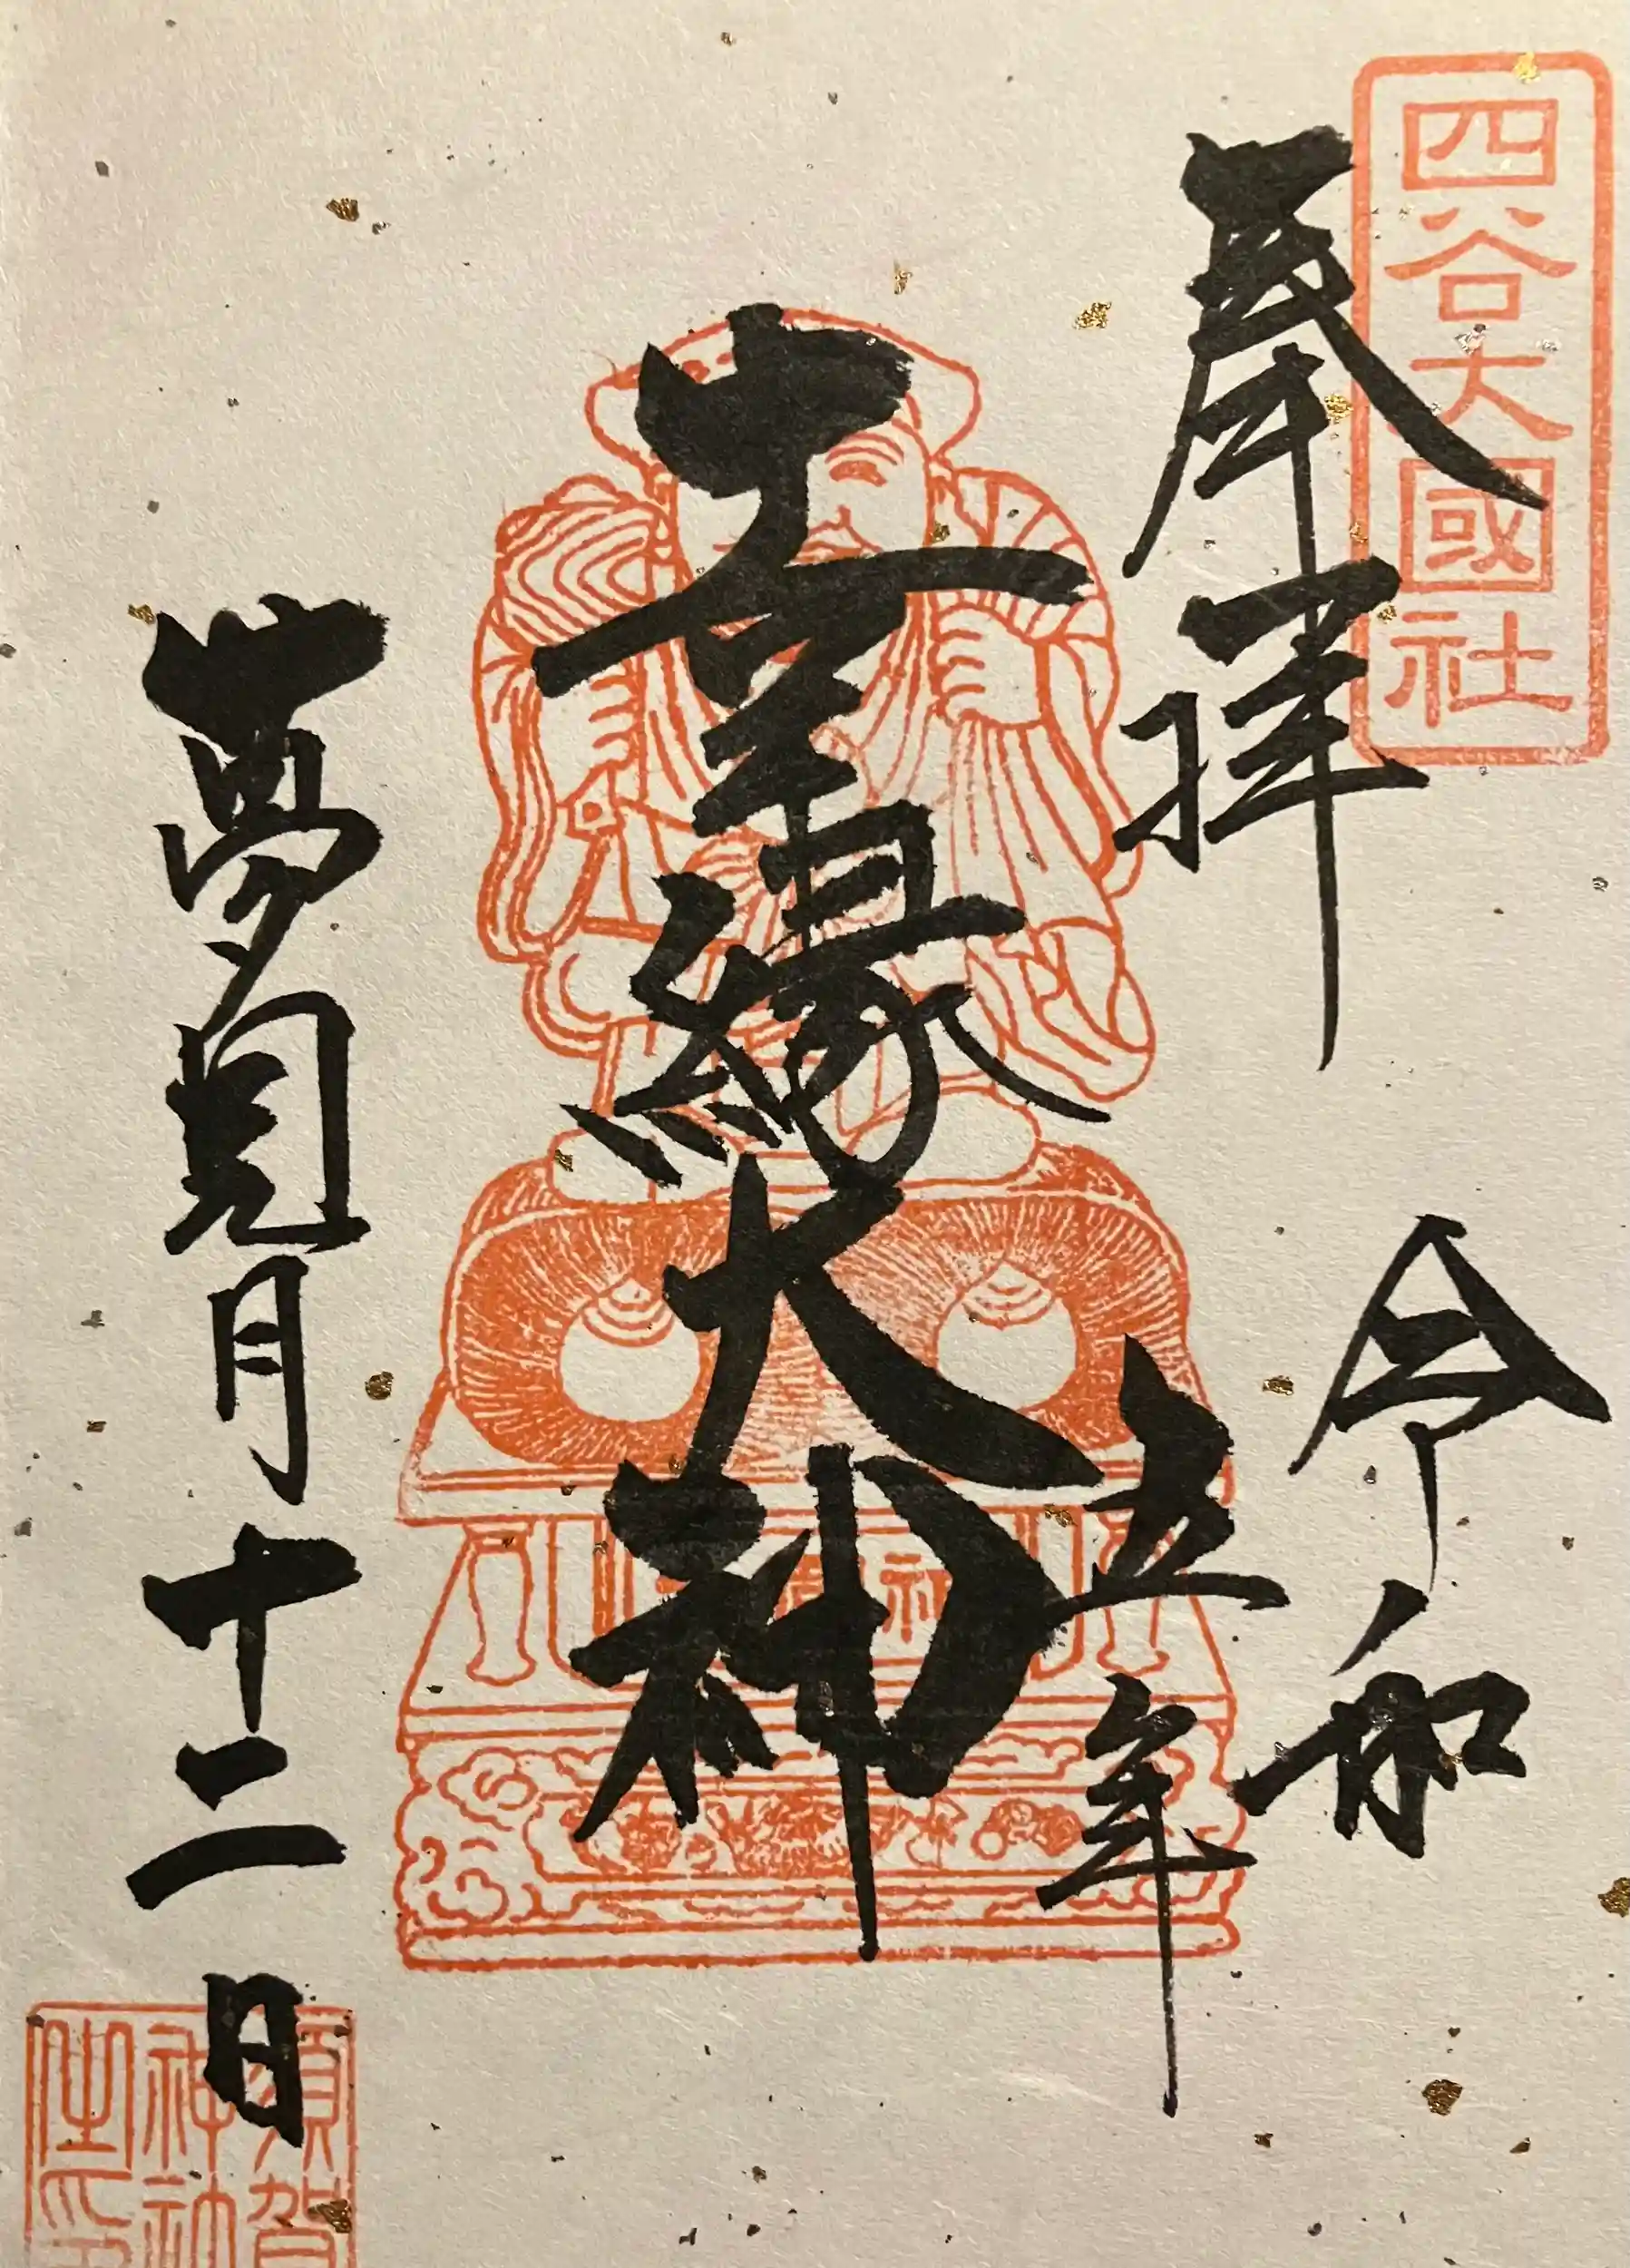 四谷大國社
奉拝
令和
五年
縁大神
夢見月十二日
須賀
神社